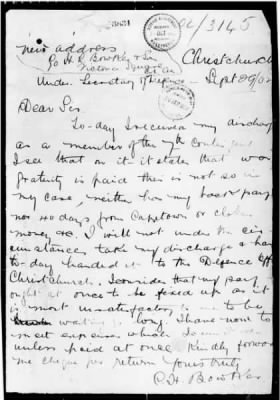 02/3145
New address
C/o H. R. Bowker & Son
Victoria Square
Christchurch
Under Secretary Defence
Sept 29/02
Dear Sir
To-day I received my discharge
as a member of the 7th Contingent
I see that on it it states that war
gratuity is paid this is not so in
my case, neither has my back pay
nor 40 days from Capetown or clothes
money &c. I will not under the cir
cumstances take my discharge & have
to-day handed it to the Defence Off
Christchurch. I consider that my pay
ought at once to be fixed up as it
is most unsatisfactory to me to be
waiting so long. I have none to
meet expenses which I
unless paid at once. Kindly forward
me cheque per return Yours truly
C. H. Bowker